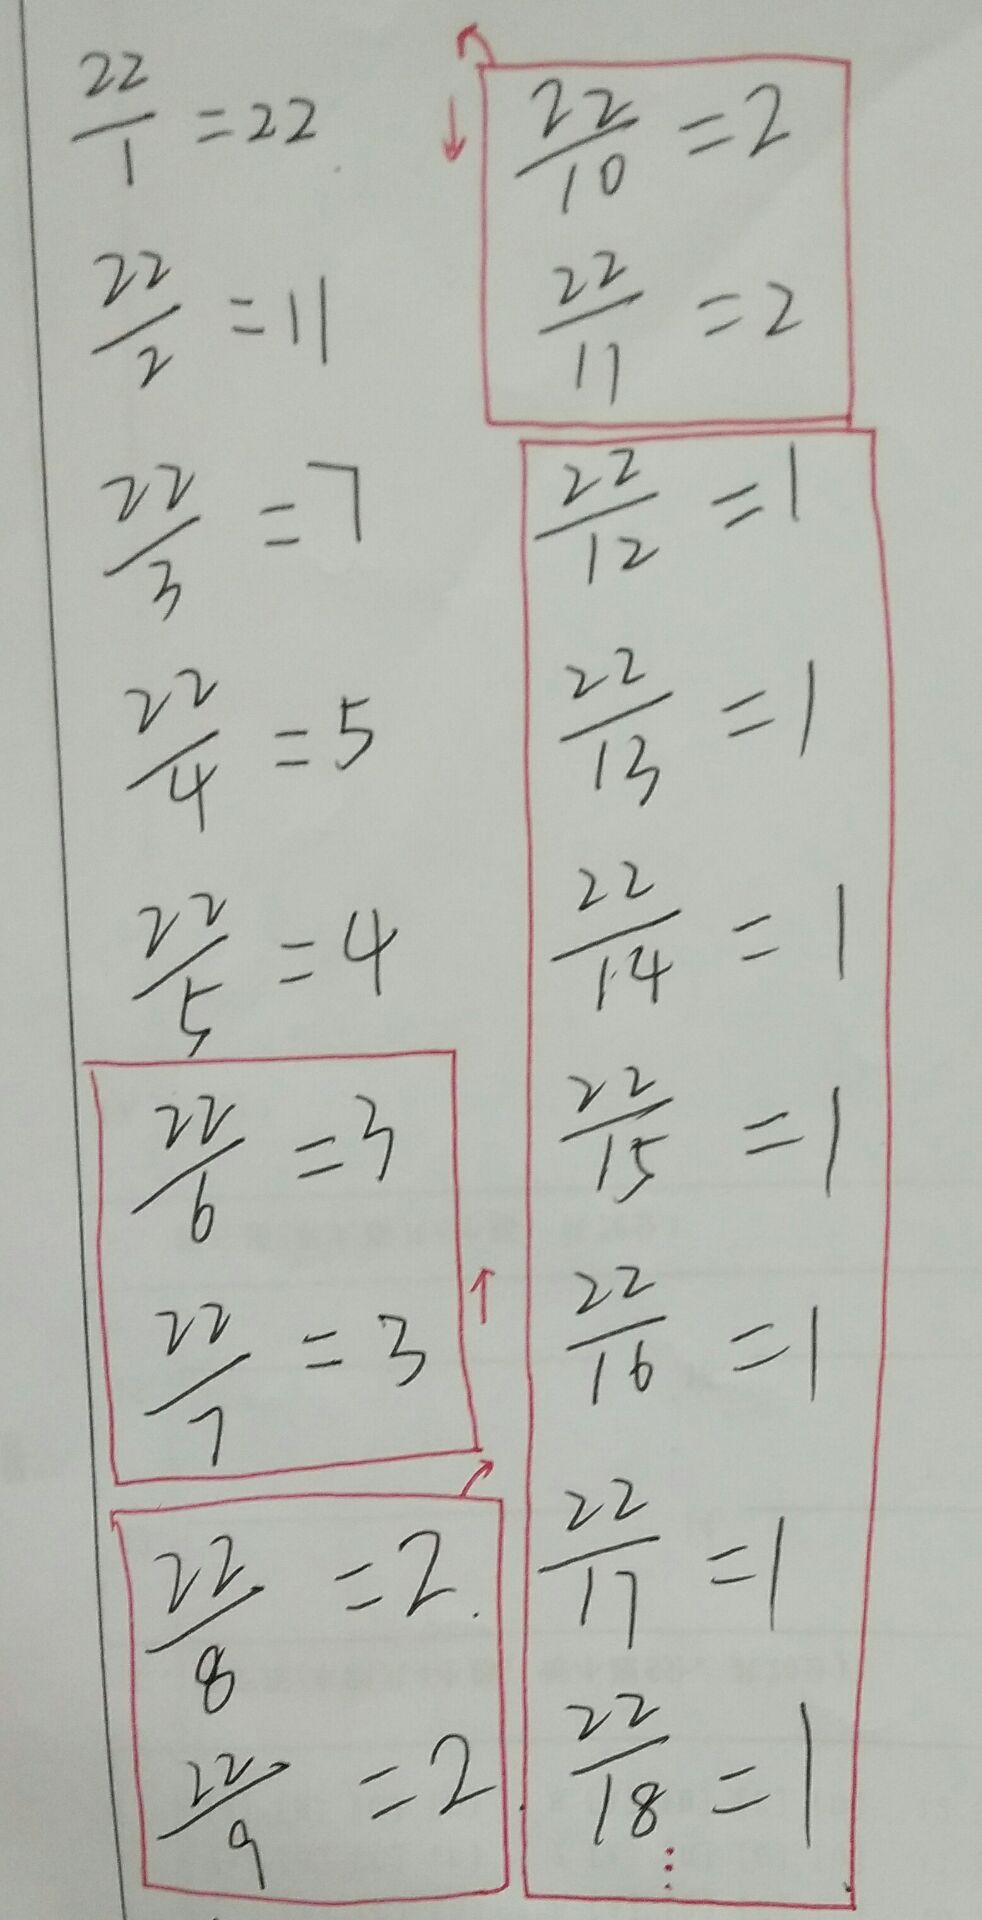 22/1 = 22
22/2 = 11
22/3 = 7
22/4 = 5
22/5 = 4
22/6 = 3
22/7 = 3
22/8 = 2
22/9 = 2
22/10 = 2
22/11 = 2
22/12 = 1
22/13 = 1
22/14 = 1
22/15 = 1
22/16 = 1
22/17 = 1
22/18 = 1
⋮